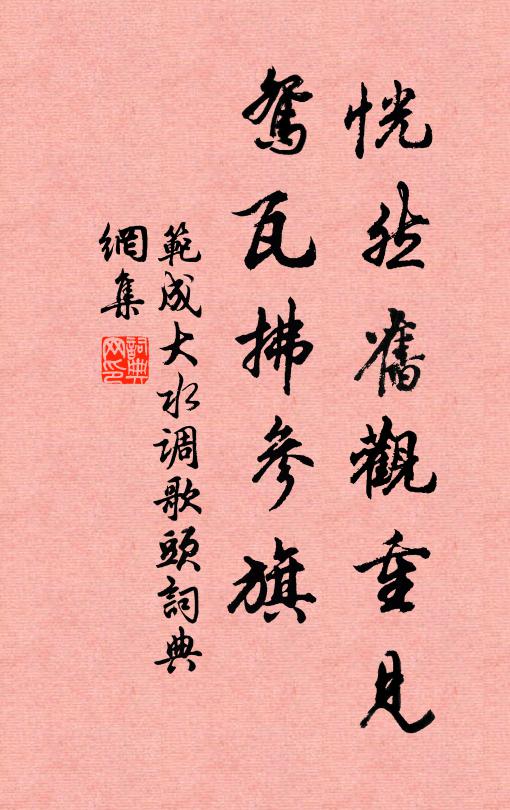 恍然舊觀重見
鴛瓦拂參旗
範成大水调歌頭詞典
網集
詞典網印